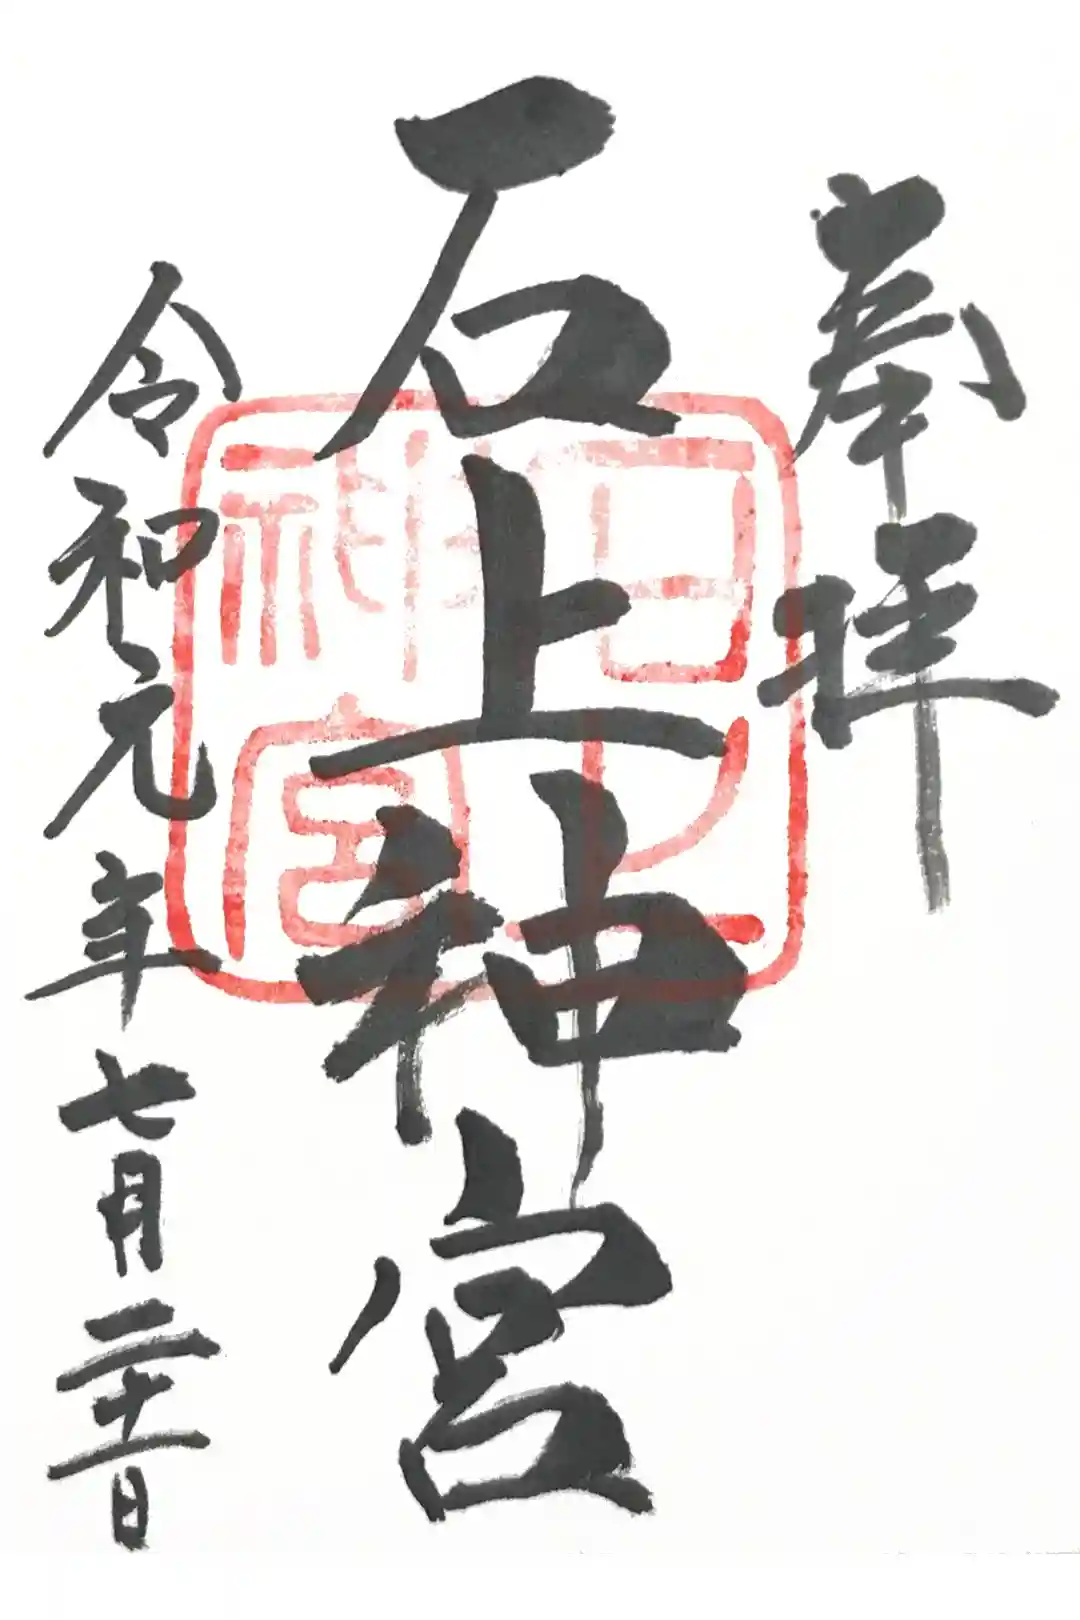 奉拝
石上神宮
令和元年七月二十一日
神宮